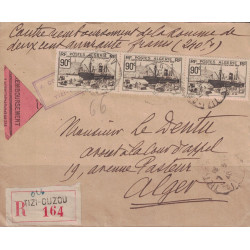 Contre remboursement de la somme de
deux cent quarante francs (240 frs)
POSTES ALGERIE
90c
POSTES ALGERIE
90c
POSTES ALGERIE
90c
REMBOURSEMENT
66
Monsieur Le Dentu
avocat à la Cour d'appel
19, avenue Pasteur
Alger
TIZI-OUZOU
R 164